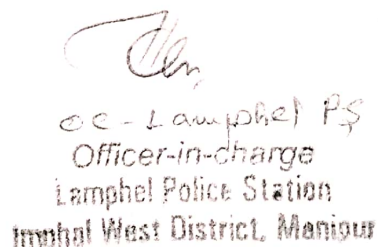 OC - Lamphel PS
Officer-in-charge
Lamphel Police Station
Imphal West District, Manipur